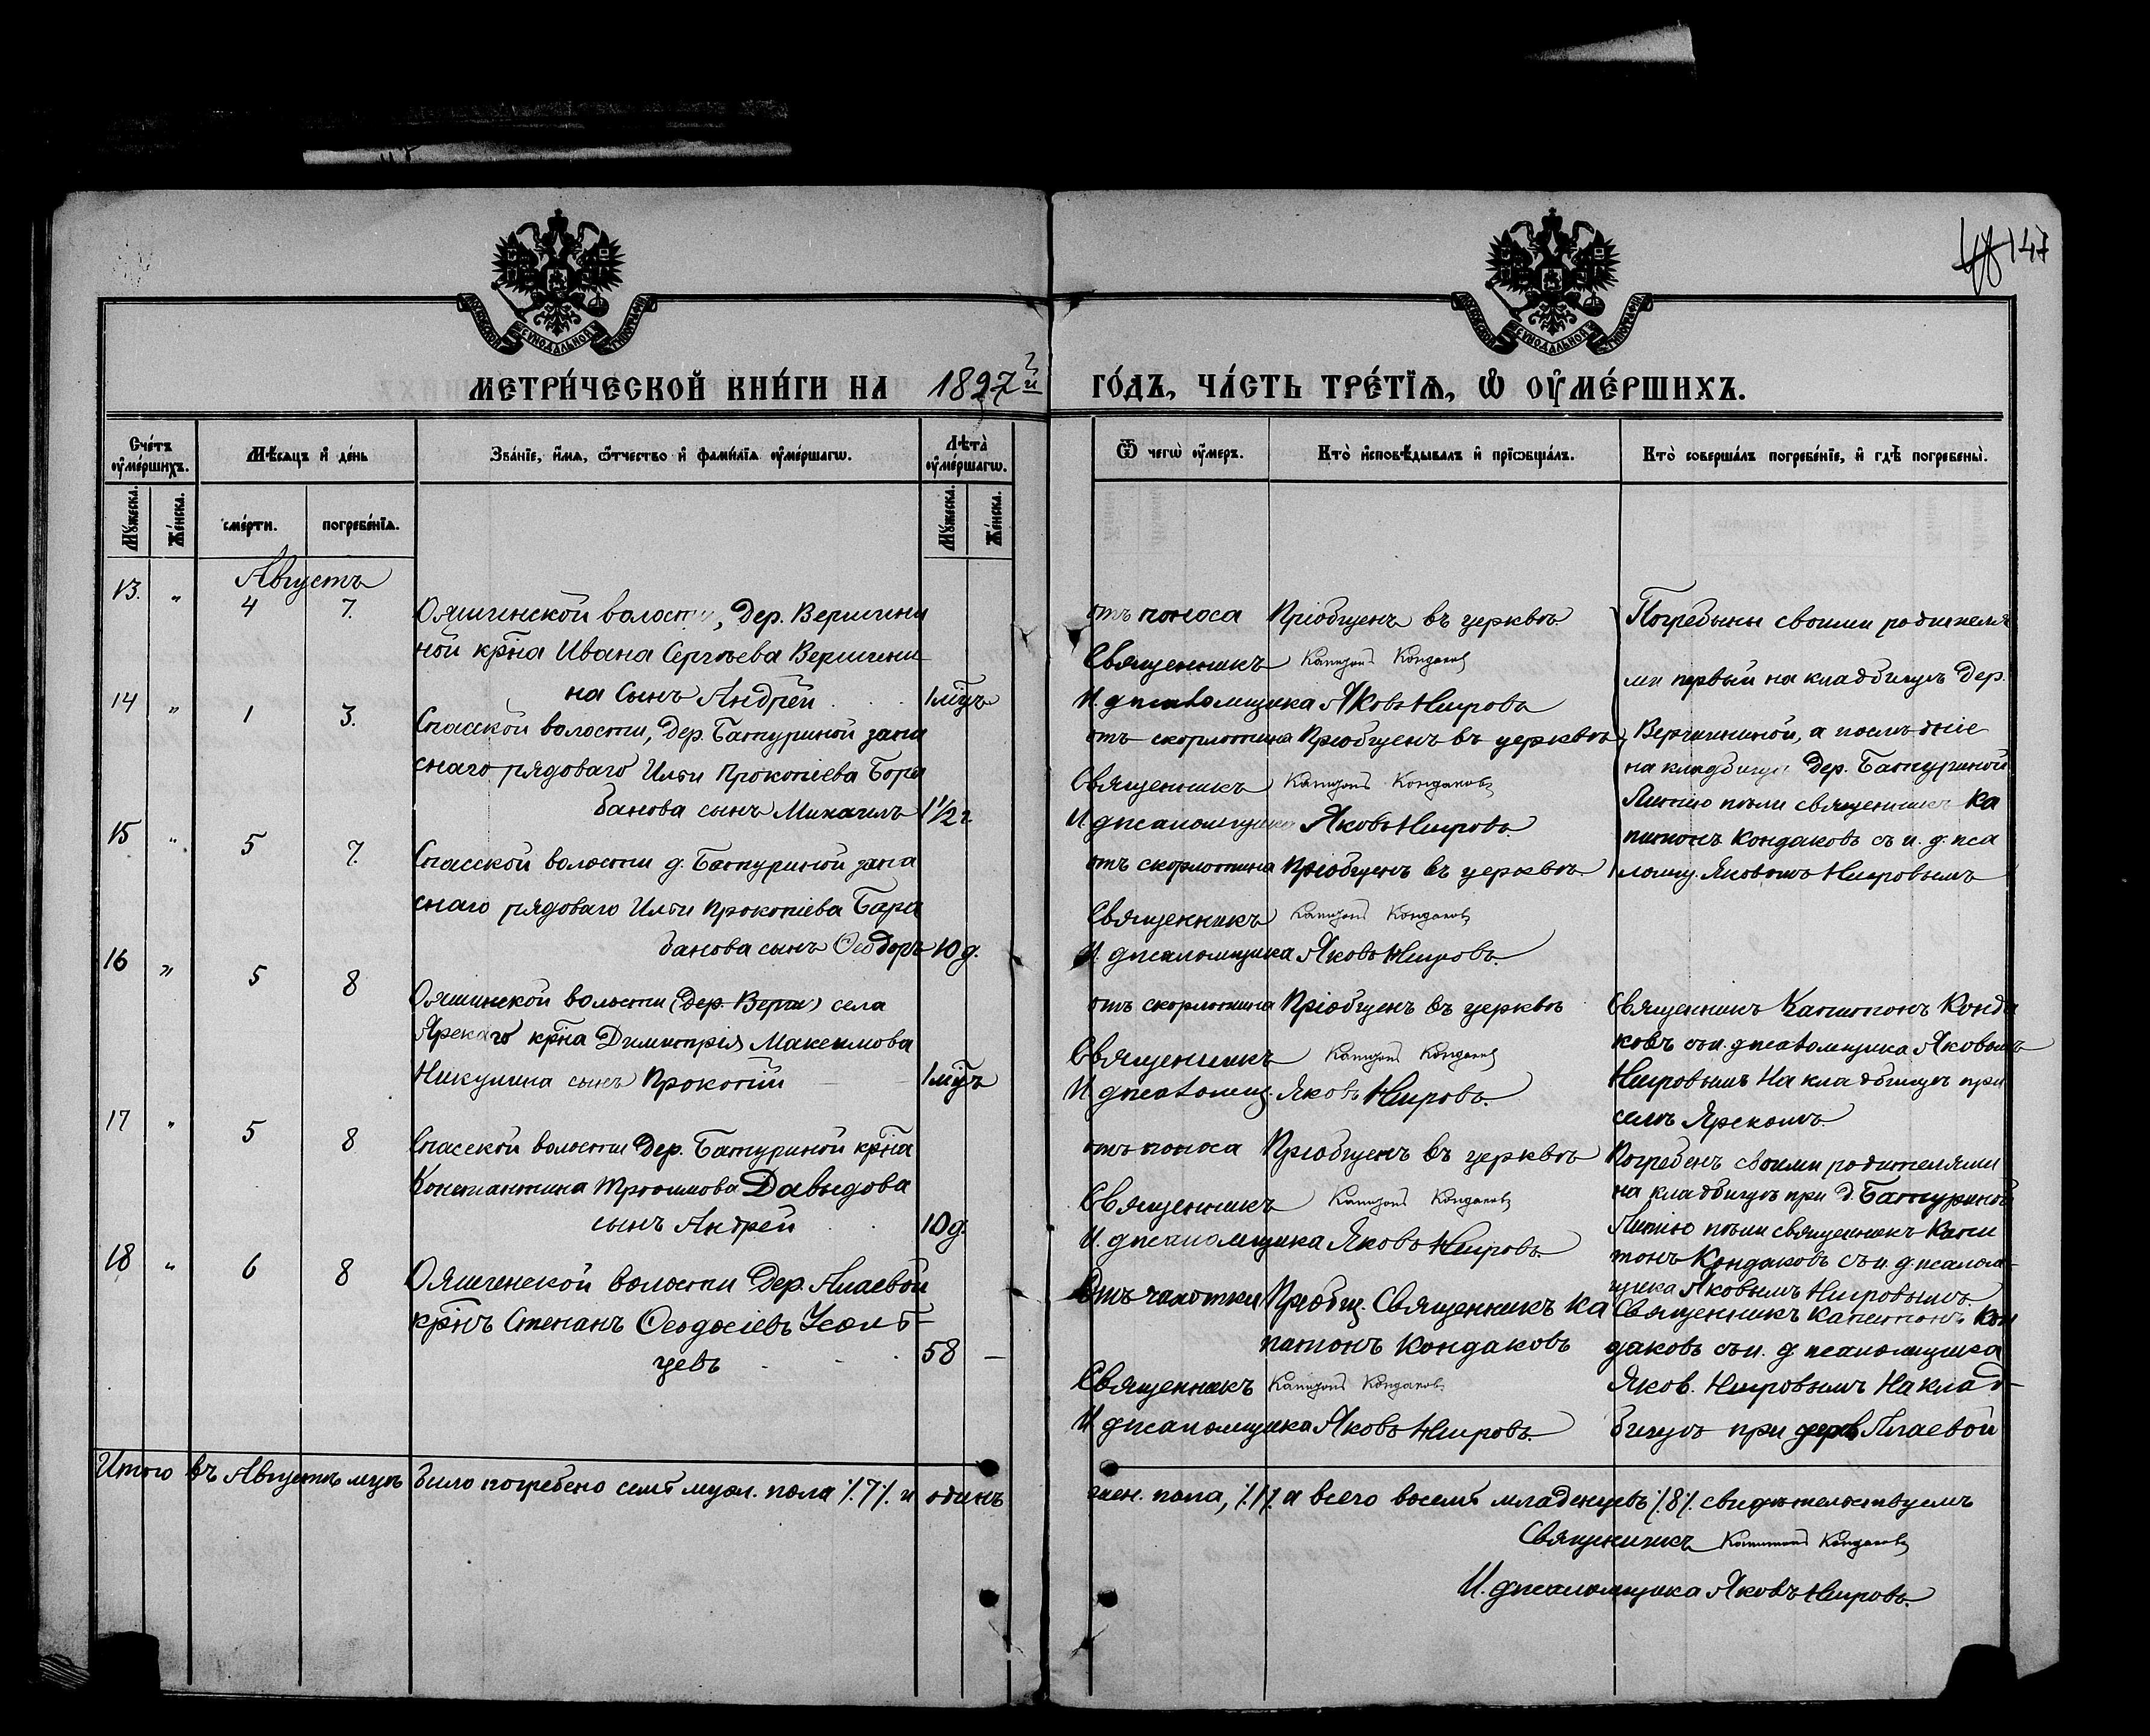 147
МЕТРИ́ЧЕСКОЙ КНИ́ГИ НА 1897й ГО́ДЪ, ЧА́СТЬ ТРЕ́ТЇѦ, Ѡ ОУ҆МЕ́РШИХЪ.
Сче́тъ оу҆ме́ршихъ.
Мѣ́сѧцъ и҆ де́нь
Зва́нїе, и҆́мѧ, ѻ҆́тчество и҆ фами́лїѧ оу҆ме́ршагѡ.
Лѣта̀ оу҆ме́ршагѡ.
Ѿ чегѡ̀ оу҆́меръ.
Кто̀ и҆сповѣ́дывалъ и҆ прїѡбща́лъ.
Кто̀ соверша́лъ погребе́нїе, и҆ гдѣ̀ погребены̀.
Мꙋ́жеска.
Же́нска.
сме́рти.
погребе́нїѧ.
Мꙋ́жеска.
Же́нска.
Августъ
13. " 4 7.
Ояшинской волости, Дер. Вершини
ной крна Ивана Сергѣева Вершини
на Сынъ Андрей 1 мцъ
отъ поноса Пріобщенъ въ церквѣ
Священникъ Капитонъ Кондаковъ
И. д псаломщика Яковъ Нигровъ
Погребены своими родителя
ми первый на кладбищѣ Дер.
Вершининой, а послѣдніе
на кладбищѣ Дер. Батуриной
Литію пѣли священникъ Ка
питонъ Кондаковъ съ и. д. пса
ломщ. Яковомъ Нигровымъ
14 " 1 3.
Спасской волости, Дер. Батуриной запа
снаго рядоваго Ильи Прокопіева Бара
банова сынъ Михаилъ 1 1/2 г
отъ скорлотина Пріобщенъ въ церквѣ
Священникъ Капитонъ Кондаковъ
И. д псаломщика Яковъ Нигровъ.
15 " 5 7.
Спасской волости д. Батуриной запа
снаго рядоваго Ильи Прокопіева Бара
банова сынъ Ѳеодоръ 10 д.
отъ скорлотина Пріобщенъ въ церквѣ
Священникъ Капитонъ Кондаковъ
И. д псаломщика Яковъ Нигровъ.
16 " 5 8
Ояшинской волости (Дер. Верш) села
Ярскаго крна Димитрія Максимова
Никулина сынъ Прокопій 1 мцъ
отъ скорлотина Пріобщенъ въ церквѣ
Священникъ Капитонъ Кондаковъ
И. д псаломщ. Яковъ Нигровъ.
Священникъ Капитонъ Конда
ковъ съ и. д псаломщика Яковомъ
Нигровымъ На кладбищѣ при
селѣ Ярскомъ.
17 " 5 8
Спасской волости Дер. Батуриной крна
Константина Трофимова Давыдова
сынъ Андрей 10 д.
отъ поноса Пріобщенъ въ церквѣ
Священникъ Капитонъ Кондаковъ
И. д псаломщика Яковъ Нигровъ
Погребенъ своими родителями
на кладбищѣ при д. Батуриной
Литію пѣли священникъ Капи
тонъ Кондаковъ съ и. д. псалом-
щика Яковымъ Нигровымъ.
18 " 6 8
Ояшинской волости Дер. Лаевой
крнъ Степанъ Ѳеодосіевъ Усоль-
цевъ 58 —
Отъ чахотки Пріобщ. Священникъ Ка
питонъ Кондаковъ
Священникъ Капитонъ Кондаковъ
И. д псаломщика Яковъ Нигровъ.
Священникъ Капитонъ Кон
даковъ съ и. д псаломщика
Яков. Нигровымъ На клад-
бищѣ при дерев Лаевой
Итого въ Августѣ мцѣ было погребено семь муж. пола %7% и одинъ
жен. пола, %1% а всего восемь младенцевъ %8% свидѣтельствуемъ
Священникъ Капитонъ Кондаковъ
И. д псаломщика Яковъ Нигровъ.